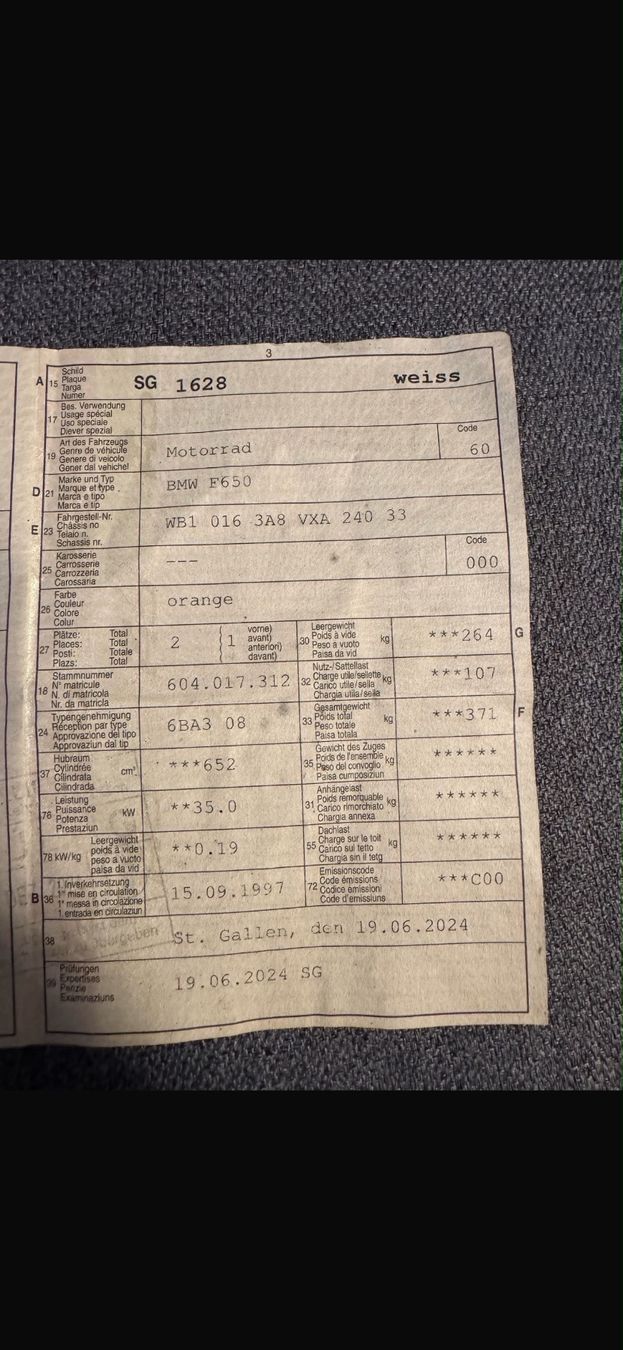 3
A 15 Schild
Plaque
Targa
Numer
SG 1628 weiss
17 Bes. Verwendung
Usage spécial
Uso speciale
Diever spezial
19 Art des Fahrzeugs
Genre de véhicule
Genere di veicolo
Gener dal vehichel
Motorrad
Code
60
D 21 Marke und Typ
Marque et type
Marca e tipo
Marca e tip
BMW F650
E 23 Fahrgestell-Nr.
Châssis no
Telaio n.
Schassis nr.
WB1 016 3A8 VXA 240 33
25 Karosserie
Carrosserie
Carrozzeria
Carossaria
---
Code
000
26 Farbe
Couleur
Colore
Colur
orange
27 Plätze: Total
Places: Total
Posti: Totale
Plazs: Total
2 { 1 vorne)
avant)
anteriori)
davant)
30 Leergewicht
Poids à vide
Peso a vuoto
Paisa da vid
kg
***264 G
18 Stammnummer
N° matricule
N. di matricola
Nr. da matricla
604.017.312
32 Nutz-/Sattellast
Charge utile/sellette
Carico utile/sella
Chargia utila/sella
kg
***107
24 Typengenehmigung
Réception par type
Approvazione del tipo
Approvaziun dal tip
6BA3 08
33 Gesamtgewicht
Poids total
Peso totale
Paisa totala
kg
***371 F
37 Hubraum
Cylindrée
Cilindrata
Cilindrada
cm³
***652
35 Gewicht des Zuges
Poids de l'ensemble
Peso del convoglio
Paisa cumposiziun
kg
******
76 Leistung
Puissance
Potenza
Prestaziun
kW
**35.0
31 Anhängelast
Poids remorquable
Carico rimorchiato
Chargia annexa
kg
******
78 kW/kg Leergewicht
poids à vide
peso a vuoto
paisa da vid
**0.19
55 Dachlast
Charge sur le toit
Carico sul tetto
Chargia sin il tetg
kg
******
B 36 1. Inverkehrsetzung
1re mise en circulation
1a messa in circolazione
1. entrada en circulaziun
15.09.1997
72 Emissionscode
Code émissions
Codice emissioni
Code d'emissiuns
***C00
38 St. Gallen, den 19.06.2024
39 Prüfungen
Expertises
Perizie
Examinaziuns
19.06.2024 SG